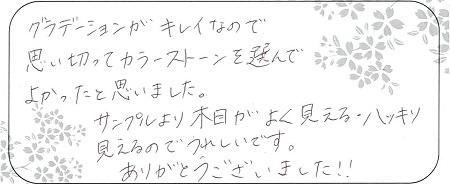 グラデーションが キレイなので
思い切ってカラーストーンを選んで
よかったと思いました。
サンプルより 木目が よく見える・ハッキリ
見えるので うれしいです。
ありがとうございました!!